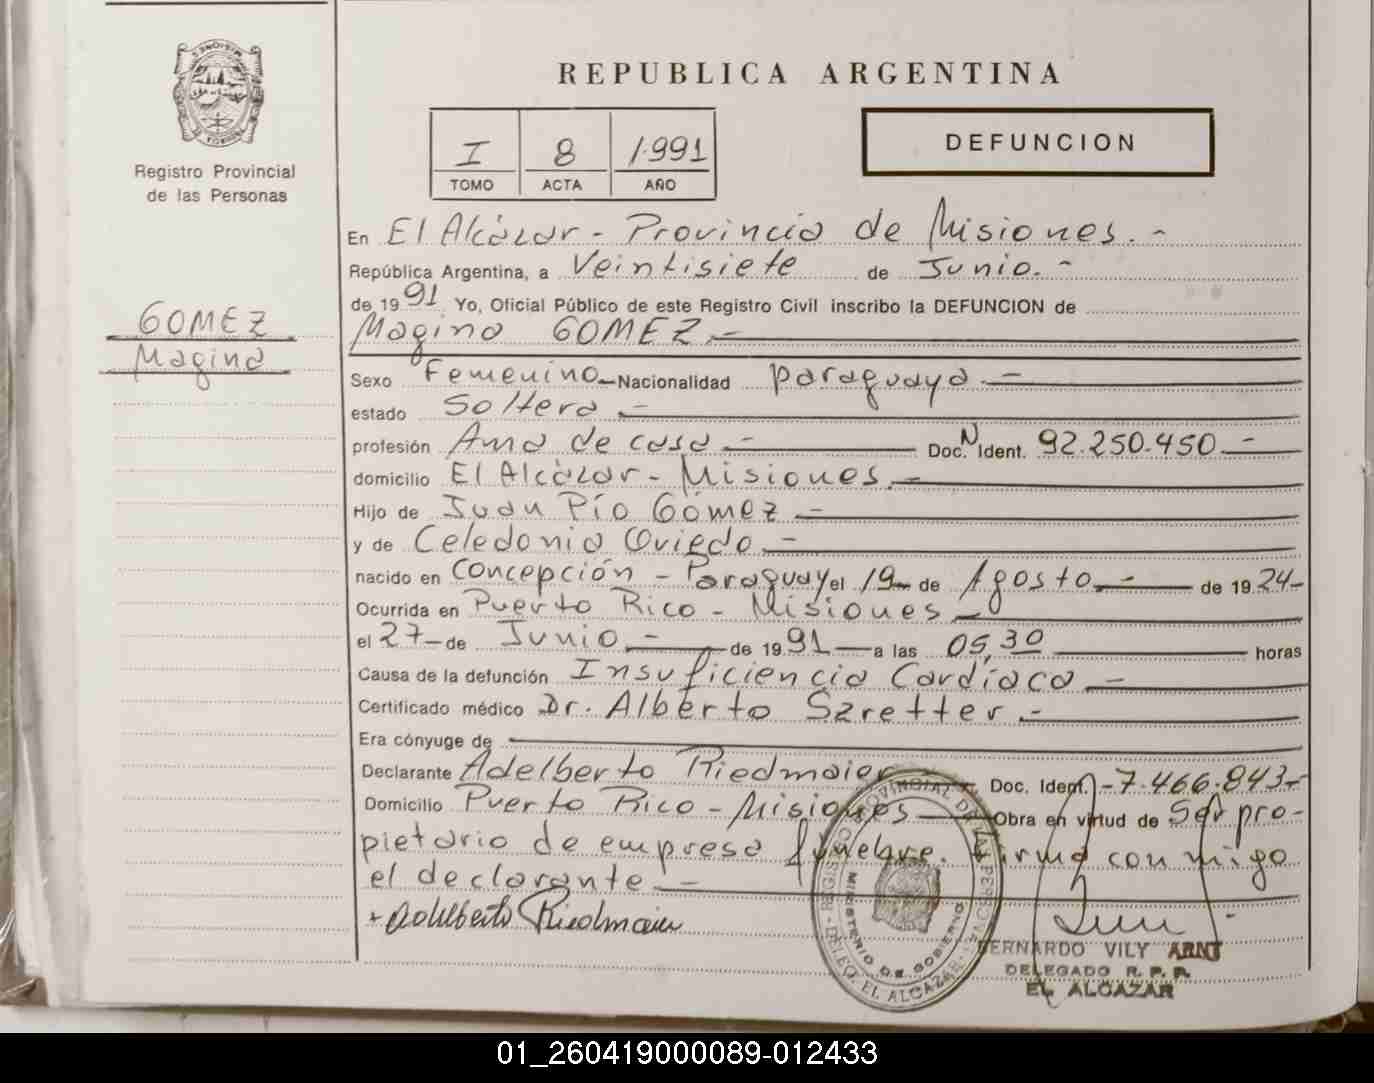 REPUBLICA ARGENTINA
I 8 1.991
TOMO ACTA AÑO
DEFUNCION
Registro Provincial
de las Personas
GOMEZ
Magina
En El Alcázar - Provincia de Misiones. -
República Argentina, a Veintisiete de Junio. -
de 19 91 Yo, Oficial Público de este Registro Civil inscribo la DEFUNCION de
Magina GOMEZ. -
Sexo Femenino - Nacionalidad paraguaya. -
estado Soltera -
profesión Ama de casa - Doc. N Ident. 92.250.450 -
domicilio El Alcázar - Misiones. -
Hijo de Juan Pío Gómez -
y de Celedonia Oviedo -
nacido en Concepción - Paraguay el 19 - de Agosto - de 19 24 -
Ocurrida en Puerto Rico - Misiones -
el 27 - de Junio - de 19 91 - a las 05,30 horas
Causa de la defunción Insuficiencia Cardíaca -
Certificado médico Dr. Alberto Szretter -
Era cónyuge de
Declarante Adelberto Riedmaier - Doc. Ident. - 7.466.843 -
Domicilio Puerto Rico - Misiones - Obra en virtud de Ser pro-
pietario de empresa fúnebre. Firma con migo
el declarante -
+ Adelberto Riedmaier
REGISTRO PROVINCIAL DE LAS PERSONAS - DELEG. EL ALCAZAR -
MINISTERIO DE GOBIERNO
BERNARDO VILY ARNT
DELEGADO R. P. P.
EL ALCAZAR
01_260419000089-012433